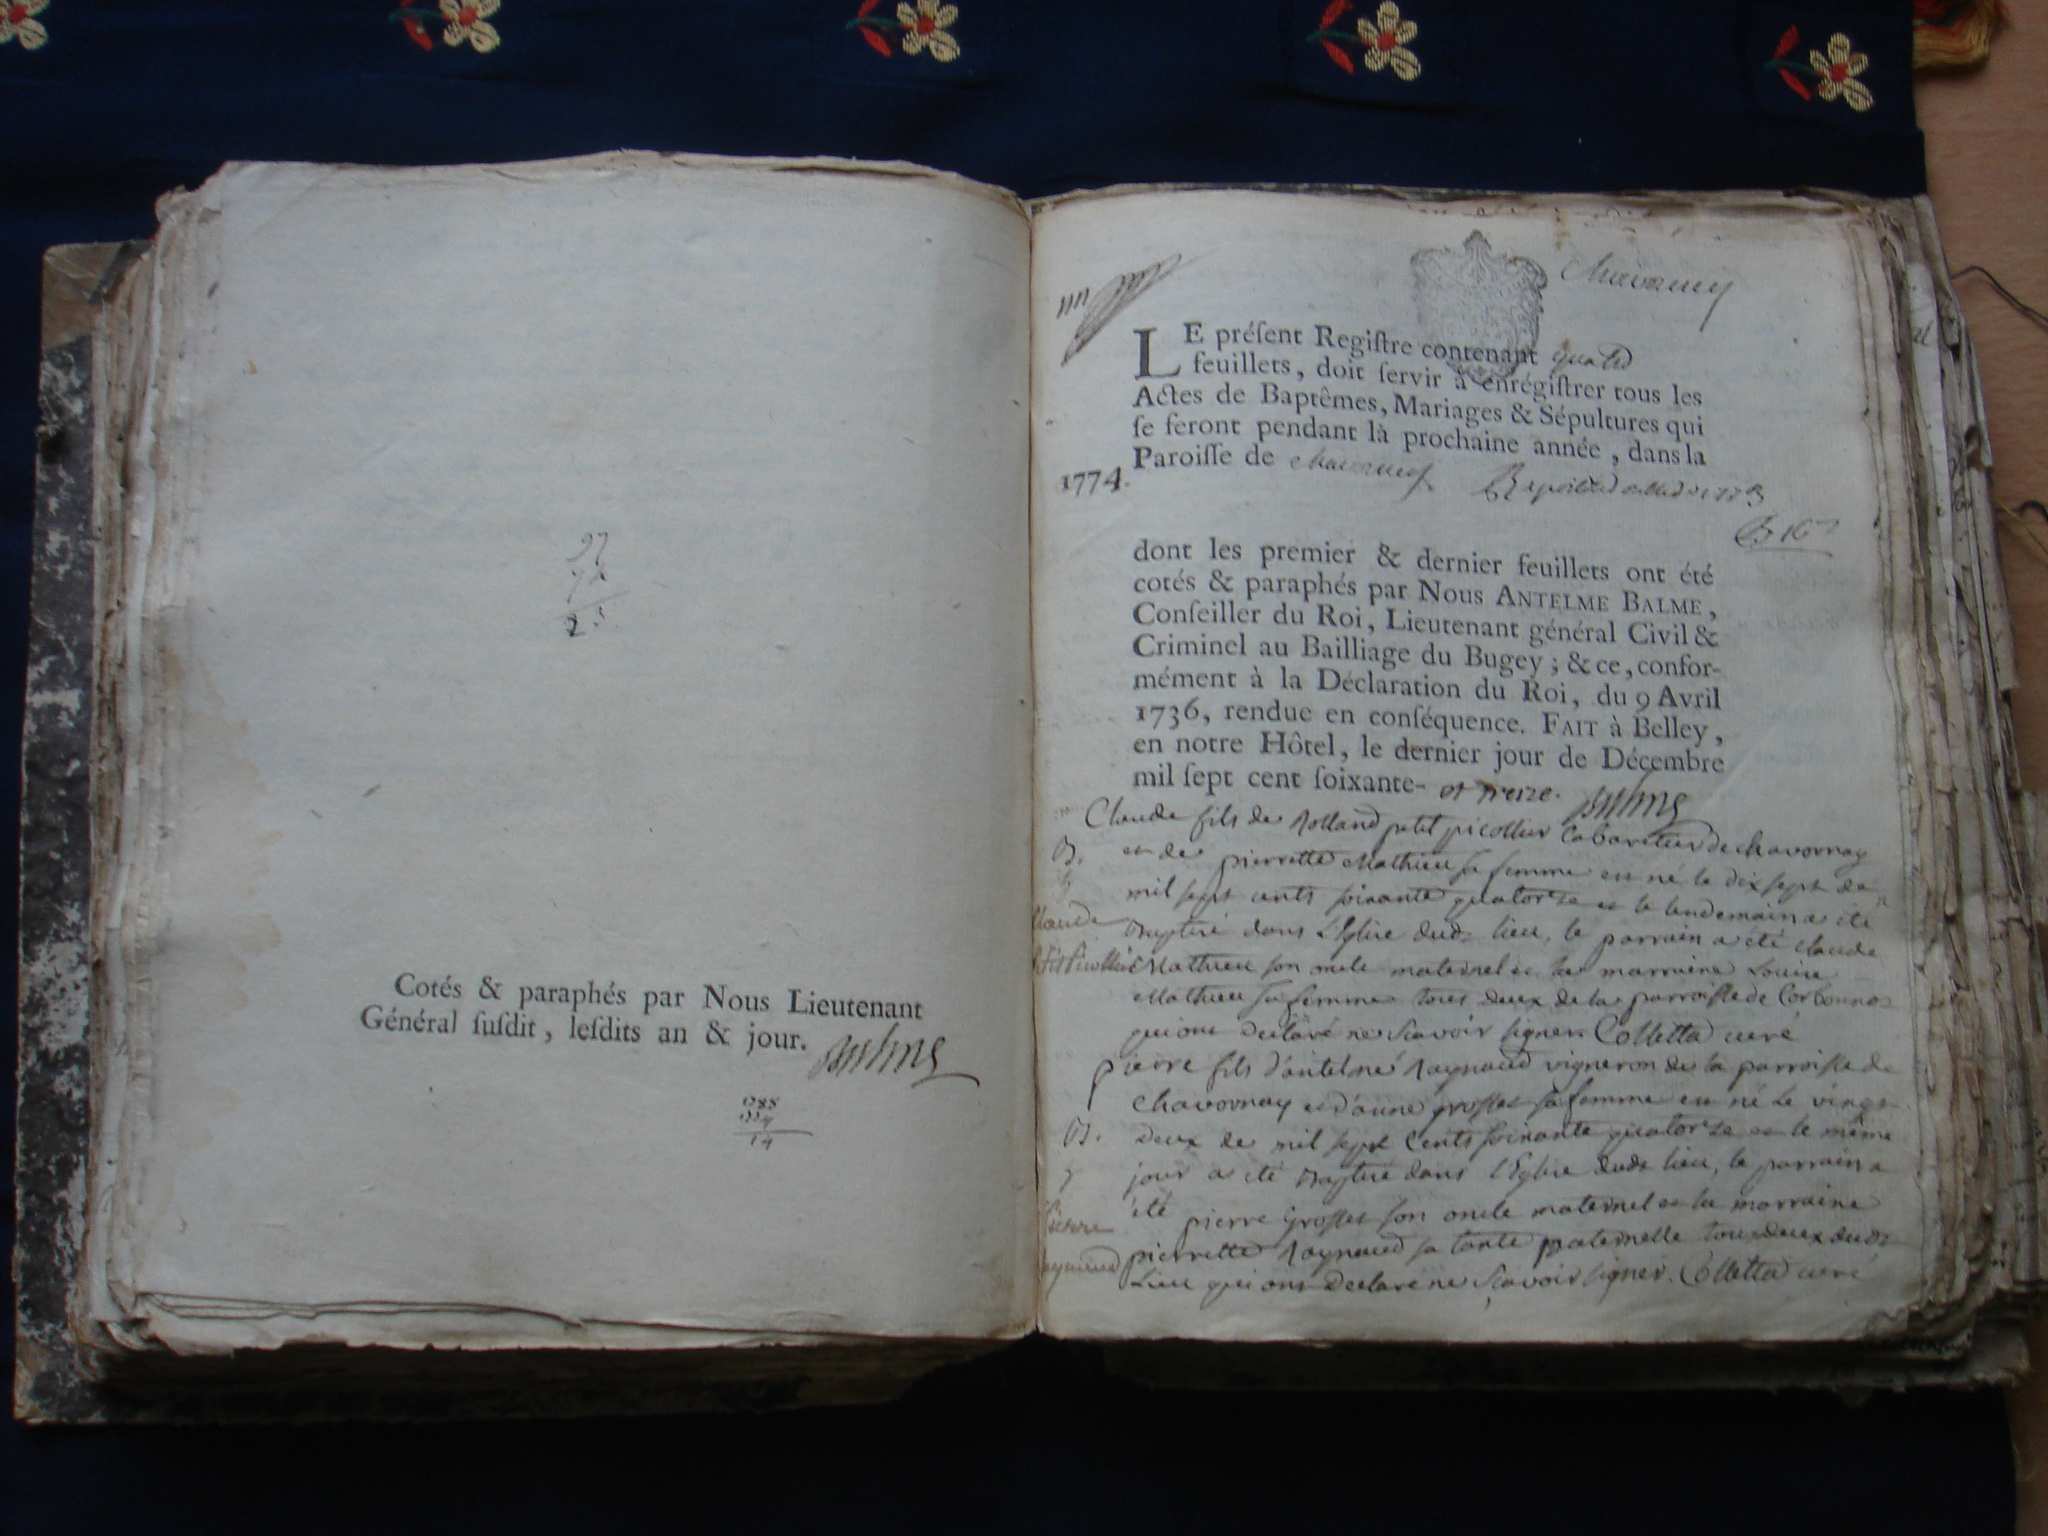 97
25
Cotés & paraphés par Nous Lieutenant
Général ſuſdit, leſdits an & jour.
1788
1774
14
Chavorney
LE préſent Regiſtre contenant quatre
feuillets, doit ſervir à enrégiſtrer tous les
Actes de Baptêmes, Mariages & Sépultures qui
ſe feront pendant là prochaine année, dans la
Paroiſſe de chavorney
1774.
dont les premier & dernier feuillets ont été
cotés & paraphés par Nous ANTELME BALME,
Conſeiller du Roi, Lieutenant général Civil &
Criminel au Bailliage du Bugey ; & ce, confor-
mément à la Déclaration du Roi, du 9 Avril
1736, rendue en conſéquence. FAIT à Belley,
en notre Hôtel, le dernier jour de Décembre
mil ſept cent ſoixante- et treize.
Claude fils de Rolland petit picollier Cabaretier de chavornay
et de pierrette Mathieu sa femme est né le dix sept
mil sept cents soixante quatorze et le lendemain a été
Baptisé dans l'Eglise dud. lieu, le parrain a été claude
Mathieu son oncle maternel et la marraine Louise
Mathieu sa femme tous deux de la parroisse de Corbonno
qui ont declaré ne scavoir signer. Colletta curé
pierre fils d'antelme Raynaud vigneron de la parroisse de
chavornay et d'anne grosset sa femme est né le vingt
deux de mil sept Cents soixante quatorze et le même
jour a été Baptisé dans l'Eglise dud. lieu, le parrain a
été pierre grosset son oncle maternel et la marraine
pierrette Raynaud sa tante paternelle tous deux dud.
Lieu qui ont declaré ne scavoir signer. Colletta curé
B.
Claude
B.
Pierre